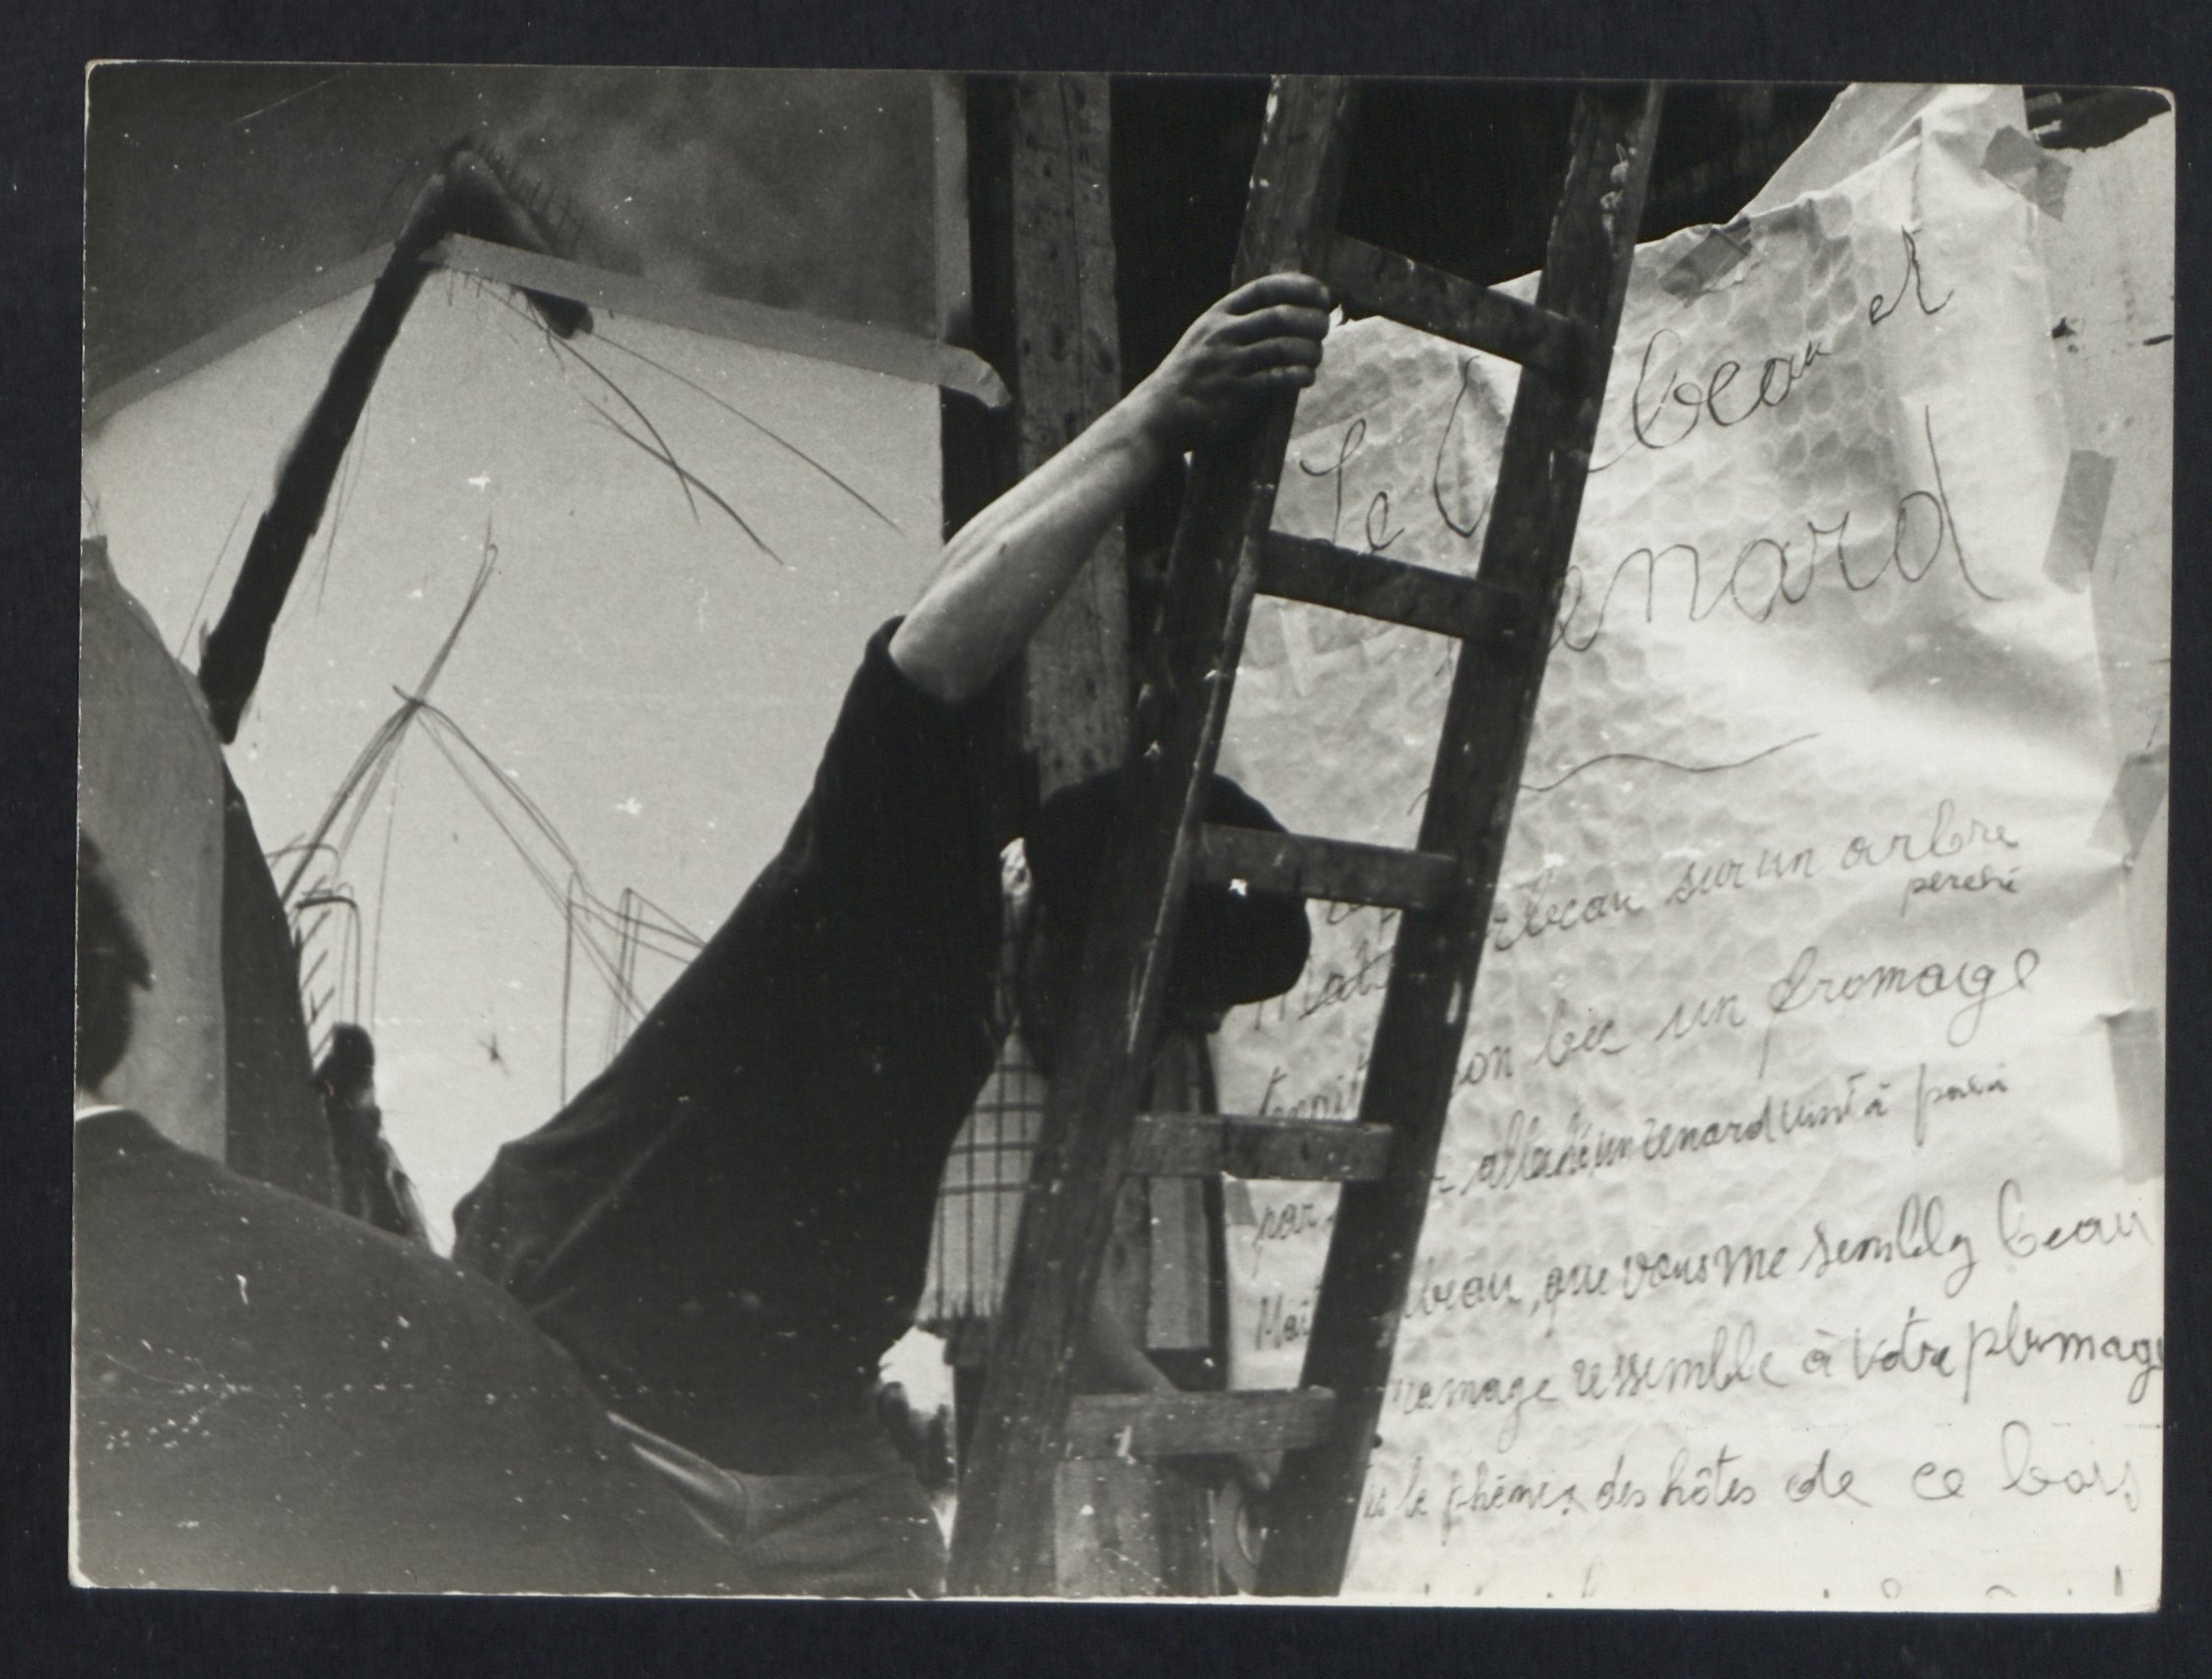 Le beau et
enard
beau sur un arbre
perché
on bec un fromage
par alléché un renard vint à
Maî beau, que vous me semblez beau
ramage ressemble à votre plumag
le phénix des hôtes de ce bois